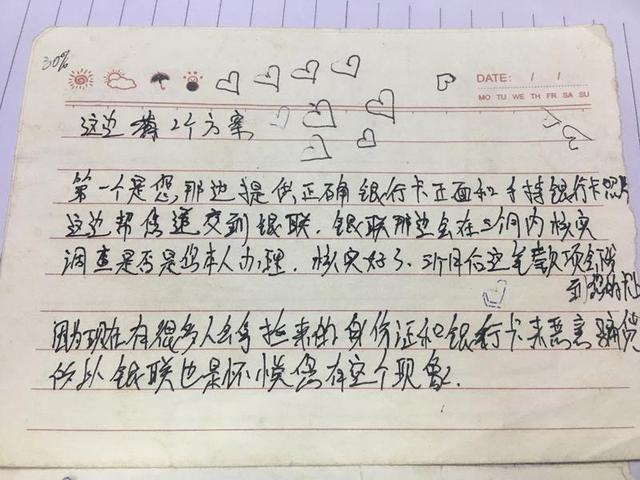 30%
DATE: / /
MO TU WE TH FR SA SU
这边有2个方案
第一个是您那边提供正确银行卡正面和手持银行卡照片
这边帮您递交到银联，银联那边会在3个月内核实
调查是否是您本人办理，核实好了，3个月后这笔款项会
到您的卡上
因为现在有很多人会拿捡来的身份证和银行卡来恶意骗贷
所以银联也是怀疑您有这个现象.